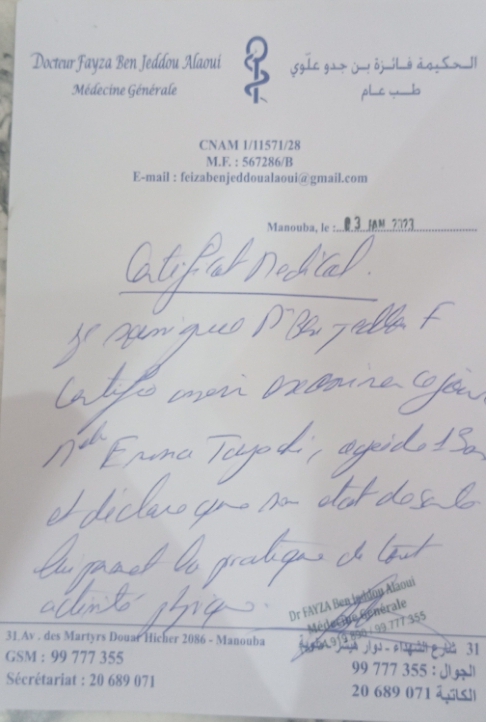 Docteur Fayza Ben Jeddou Alaoui
Médecine Générale
الحكيمة فائزة بن جدو علّوي
طب عام
CNAM 1/11571/28
M.F. : 567286/B
E-mail : feizabenjeddoualaoui@gmail.com
Manouba, le : 03 JAN 2023
Certificat Medical.
Je soussignée Dr Ben Jeddou F
Certifie avoir examiner ce jour
Melle Emna, agée de 13 an
et déclare que son état de santé
lui permet la pratique de tout
activité physique.
Dr FAYZA Ben Jeddou Alaoui
Médecine Générale
99 777 355
31 Av . des Martyrs Douar Hicher 2086 - Manouba
GSM : 99 777 355
Sécrétariat : 20 689 071
31 شارع الشهداء - دوار هيشر
الجوال : 99 777 355
الكاتبة 20 689 071